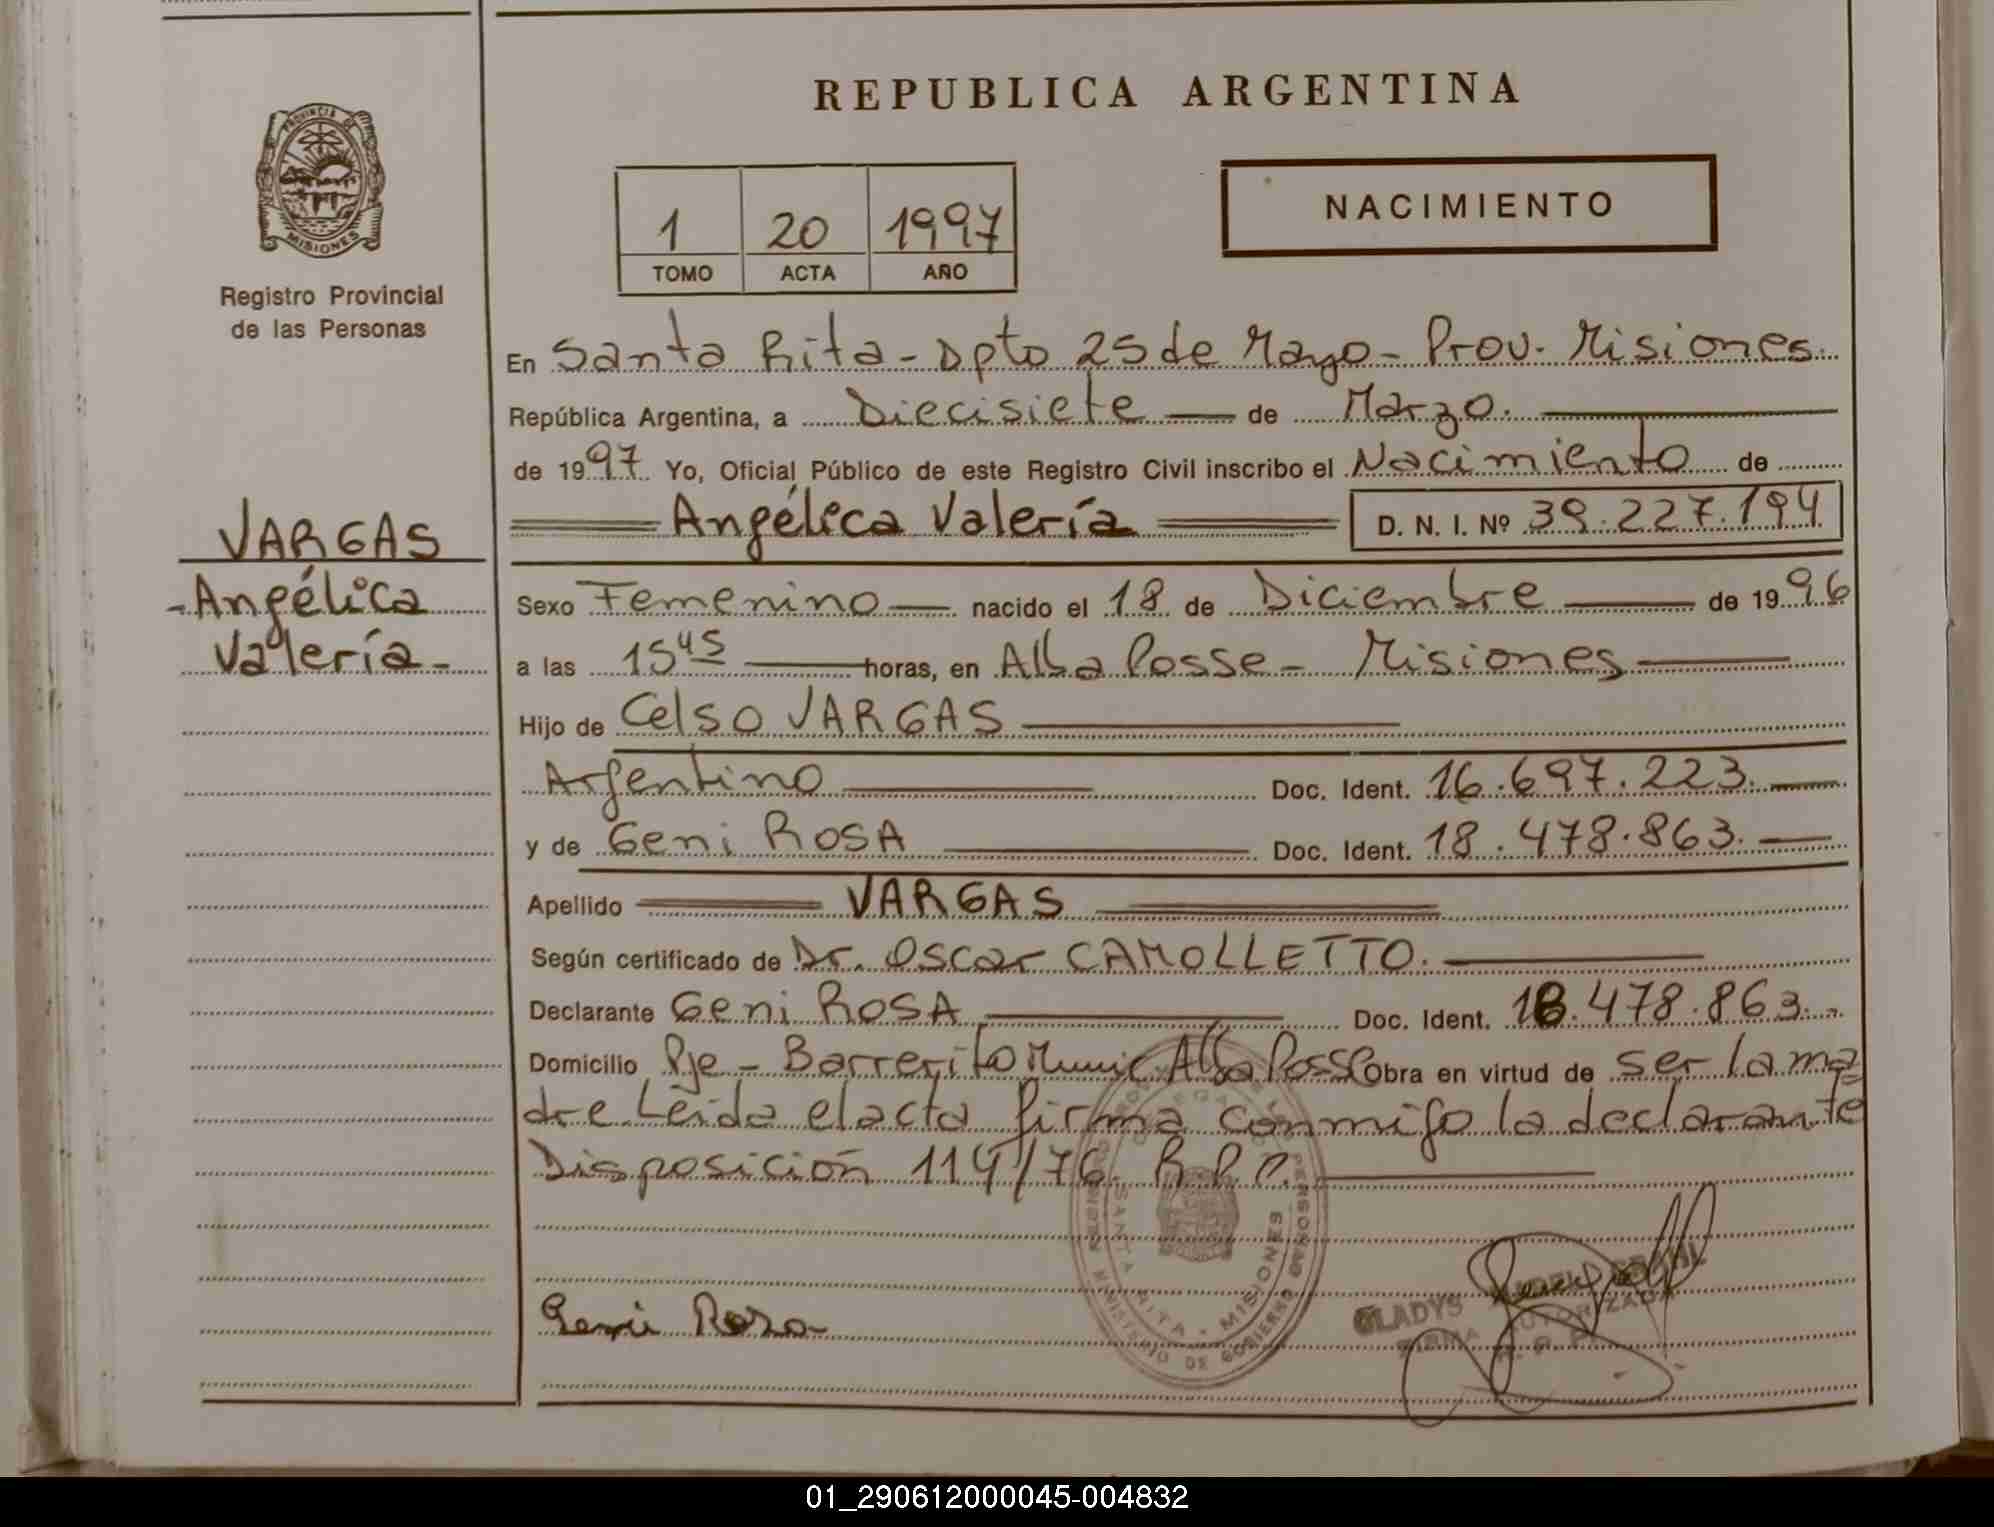 REPUBLICA ARGENTINA
PROVINCIA DE
MISIONES
Registro Provincial
de las Personas
1 20 1997
TOMO ACTA AÑO
NACIMIENTO
En Santa Rita - Dpto 25 de Mayo - Prov. Misiones.
República Argentina, a Diecisiete de Marzo.
de 1997 Yo, Oficial Público de este Registro Civil inscribo el Nacimiento de
Angélica Valería D. N. I. Nº 39.227.194
VARGAS
- Angélica
Valería -
Sexo Femenino nacido el 18 de Diciembre de 1996
a las 15 45 horas, en Alba Posse - Misiones
Hijo de Celso VARGAS
Argentino Doc. Ident. 16.697.223.
y de Geni ROSA Doc. Ident. 18.478.863.
Apellido VARGAS
Según certificado de Dr. Oscar CAMOLLETTO.
Declarante Geni ROSA Doc. Ident. 18.478.863.-
Domicilio Pje - Barrerito Munic Alba Posse Obra en virtud de ser la ma
dre Leida el acta firma conmigo la declarante
Disposición 114/76. R.P.P.
SANTA RITA - MISIONES
MINISTERIO DE GOBIERNO
Geni Rosa
GLADYS
FIRMA AUTORIZADA
R. P. P.
01_290612000045-004832